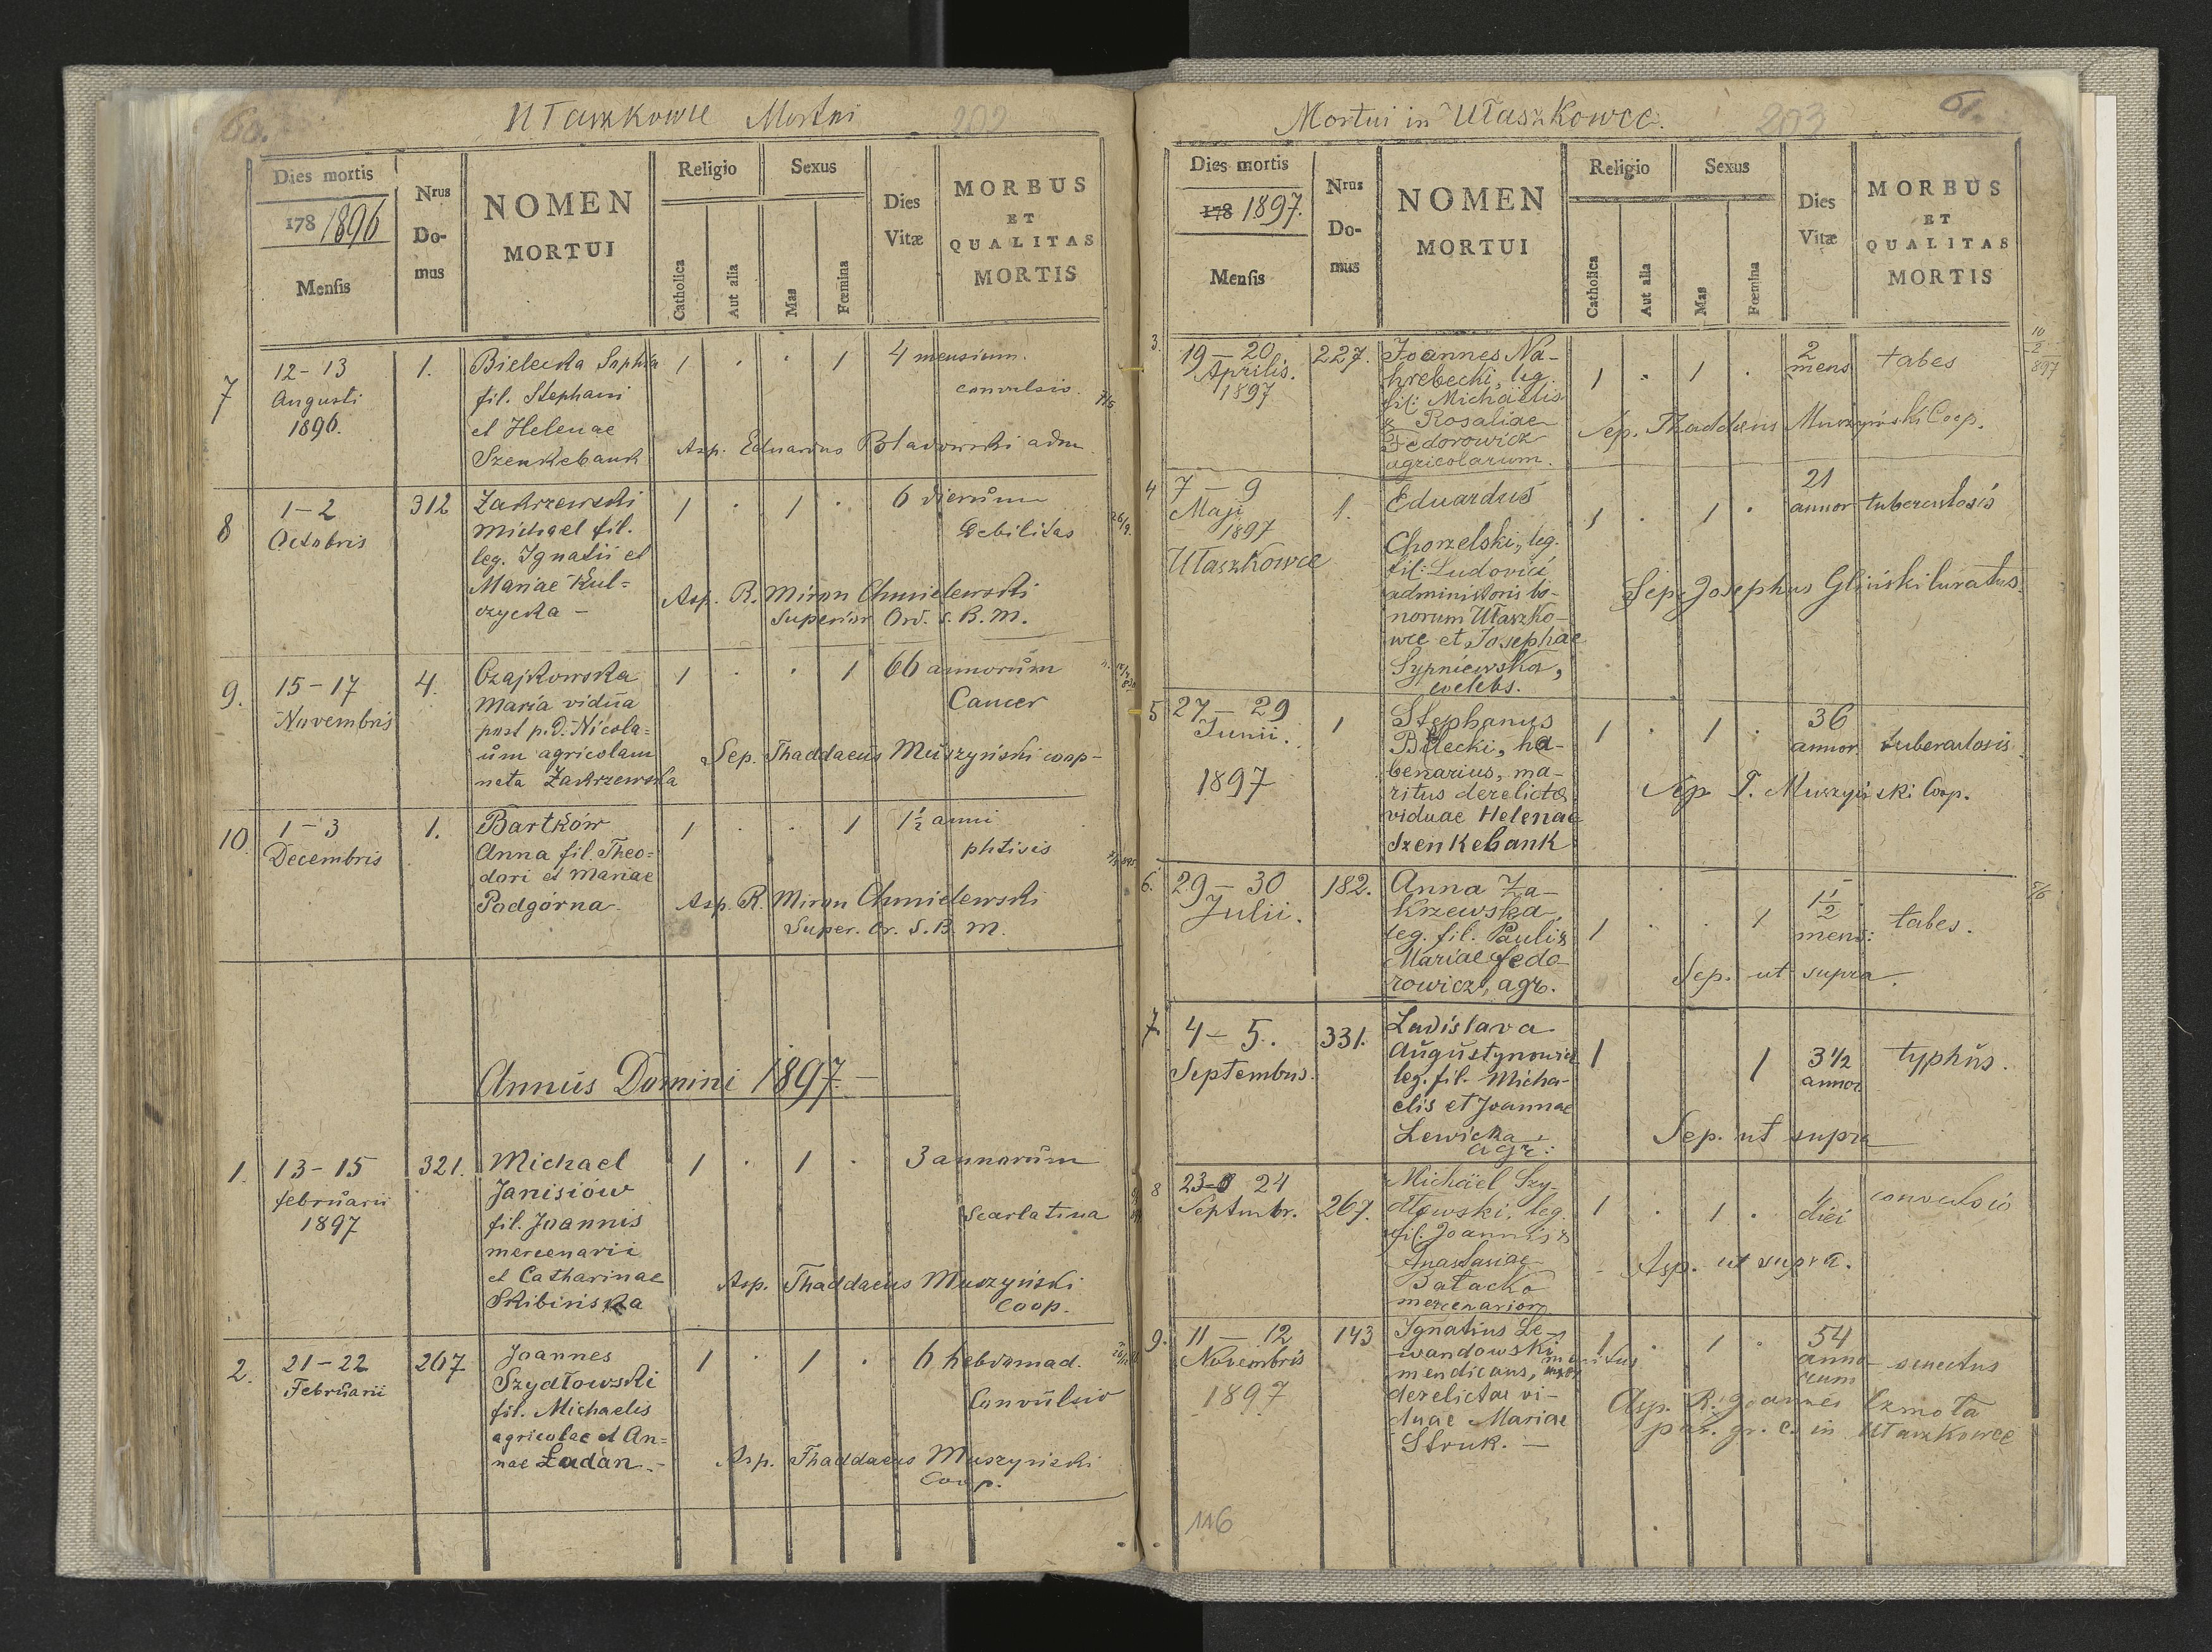 60.
Ułaszkowce Mortui
202
Dies mortis
178 1896
Mensis
Nrus
Do-
mus
NOMEN
MORTUI
Religio
Catholica
Aut alia
Sexus
Mas
Fœmina
Dies
Vitæ
MORBUS
ET
QUALITAS
MORTIS
7
12-13
Augusti
1896.
1.
Bielecka Sophia
fil. Stephani
et Helenae
Szenkebank
1 . . 1
4 mensium.
convulsio.
Asp. Eduardus adm
8
1-2
Octobris
312
Zakrzewski
Michael fil.
leg. Ignatii et
Mariae Kul=
czycka -
1 . 1 .
6 dierum
Debilitas
26/9.
Asp. R. Miron Chmielewski
Superior Ord. S. B. M.
9.
15-17
Novembris
4.
Czajkowska
Maria vidua
post p. d. Nicola=
um agricolam
nata Zakrzewska
1 . . 1
66 annorum
Cancer
Sep. Thaddaeus Muszyński coop-
10.
1-3
Decembris
1.
Bartków
Anna fil. Theo=
dori et Mariae
Podgórna.
1 . . 1
1 1/2 anni
phtisis
Asp. R. Miron Chmielewski
Super. Or. S. B. M.
Annus Domini 1897.-
1.
13-15
februarii
1897
321.
Michael
Janisiów
fil. Joannis
mercenarii
et Catharinae
Skibińska
1 . 1 .
3 annorum
Scarlatina
Asp. Thaddaeus Muszyński
Coop.
2.
21-22
Februarii
267
Joannes
Szydłowski
fil. Michaelis
agricolae et An=
nae Ładan.-
1 . 1 .
6 hebdomad.
Convulsio
Asp. Thaddaeus Muszyński
Coop.
Mortui in Ułaszkowce.
203
61.
Dies mortis
178 1897.
Mensis
Nrus
Do-
mus
NOMEN
MORTUI
Religio
Catholica
Aut alia
Sexus
Mas
Fœmina
Dies
Vitæ
MORBUS
ET
QUALITAS
MORTIS
3.
19-20
Aprilis.
1897
227.
Joannes Na-
hrebecki, leg.
fil: Michaëlis
& Rosaliae
Fedorowicz
agricolarum.
1 . 1 .
2
mens
tabes
10
2
897
Sep. Thaddæus Muszyński Coop.
4
7-9
Maji
1897
Ułaszkowce
1.
Eduardus
Chorzelski, leg.
fil: Ludovici
administoris bo-
norum Ułaszko-
wce et Josephae
Sypniewska,
coelebs.
1 . 1 .
21
annor
tuberculosis
Sep. Josephus Gliński Curatus.
5
27-29
Junii.
1897
1
Stephanus
Bilecki, ha-
benarius, ma-
ritus derelictae
viduae Helenae
Szenkebank
1 . 1 .
36
annor.
tuberculosis
Sep T. Muszyński Coop.
6.
29-30
Julii.
182.
Anna Za-
krzewska,
leg. fil. Pauli &
Mariae Fedo-
rowicz, agr.
1 . . 1
1 1/2
mens:
tabes.
Sep. ut supra.
7.
4-5.
Septembris.
331.
Ladislava
Augustynowicz
leg. fil. Micha-
elis et Joannae
Lewicka
agr:
1 1
3 1/2
annor
typhus.
Sep. ut supra
8
23- 24
Septmbr.
267.
Michäel Szy-
dłowski, leg.
fil: Joannis &
Anastasiae
Bałacka
mercenarior.
1 . 1 .
1
diei
convulsio
Asp. ut supra.
9.
11-12
Novembris
1897
143
Ignatius Le-
wandowski,
mendicans, maritus
derelictae vi-
duae Mariae
Struk.-
1 . 1 .
54
anno-
rum
senectus
Asp. R. Joannes Czmoła
par. gr. c. in Ułaszkowce
116